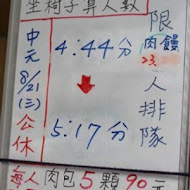 坐椅子算人數
限肉饅
人排隊
中元
8/21
(三)
公休
4:44分
5:17分
每人肉包5顆90元